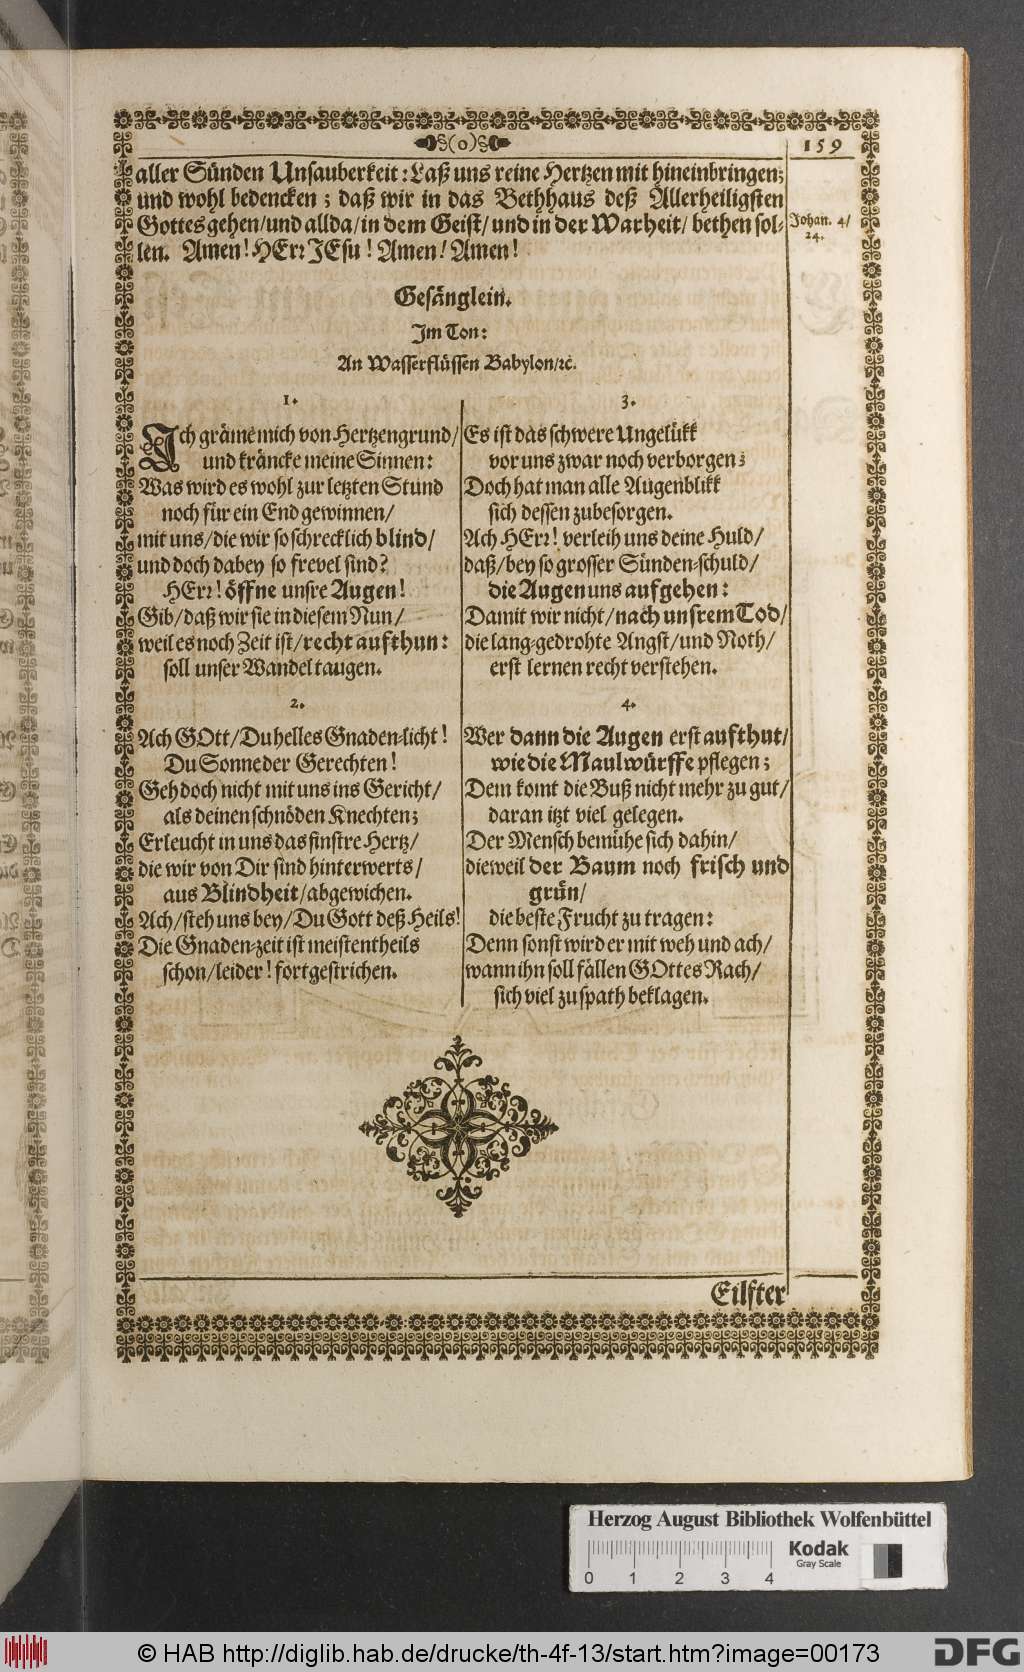 (o)
159
aller Sünden Unsauberkeit: Laß uns reine Hertzen mit hineinbringen;
und wohl bedencken; daß wir in das Bethhaus deß Allerheiligsten
Gottes gehen/und allda/in dem Geist/und in der Warheit/bethen sol-
len. Amen! HErr JEsu! Amen! Amen!
Johan. 4/
24.
Gesänglein.
Im Ton:
An Wasserflüssen Babylon/ꝛc.
1.
Ich gräme mich von Hertzengrund/
und kräncke meine Sinnen:
Was wird es wohl zur letzten Stund
noch für ein End gewinnen/
mit uns/die wir so schrecklich blind/
und doch dabey so frevel sind?
HErr! öffne unsre Augen!
Gib/daß wir sie in diesem Nun/
weil es noch Zeit ist/recht aufthun:
soll unser Wandel taugen.
2.
Ach GOtt/Du helles Gnaden-licht!
Du Sonne der Gerechten!
Geh doch nicht mit uns ins Gericht/
als deinen schnöden Knechten;
Erleucht in uns das finstre Hertz/
die wir von Dir sind hinterwerts/
aus Blindheit/abgewichen.
Ach/steh uns bey/Du Gott deß Heils!
Die Gnaden-zeit ist meistentheils
schon/leider! fortgestrichen.
3.
Es ist das schwere Ungelükk
vor uns zwar noch verborgen;
Doch hat man alle Augenblikk
sich dessen zubesorgen.
Ach HErr! verleih uns deine Huld/
daß/bey so grosser Sünden-schuld/
die Augen uns aufgehen:
Damit wir nicht/nach unsrem Tod/
die lang-gedrohte Angst/und Noth/
erst lernen recht verstehen.
4.
Wer dann die Augen erst aufthut/
wie die Maulwürffe pflegen;
Dem komt die Buß nicht mehr zu gut/
daran itzt viel gelegen.
Der Mensch bemühe sich dahin/
dieweil der Baum noch frisch und
grün/
die beste Frucht zu tragen:
Denn sonst wird er mit weh und ach/
wann ihn soll fällen GOttes Rach/
sich viel zu spath beklagen.
Eilfter
Herzog August Bibliothek Wolfenbüttel
Kodak
Gray Scale
0 1 2 3 4
© HAB http://diglib.hab.de/drucke/th-4f-13/start.htm?image=00173
DFG